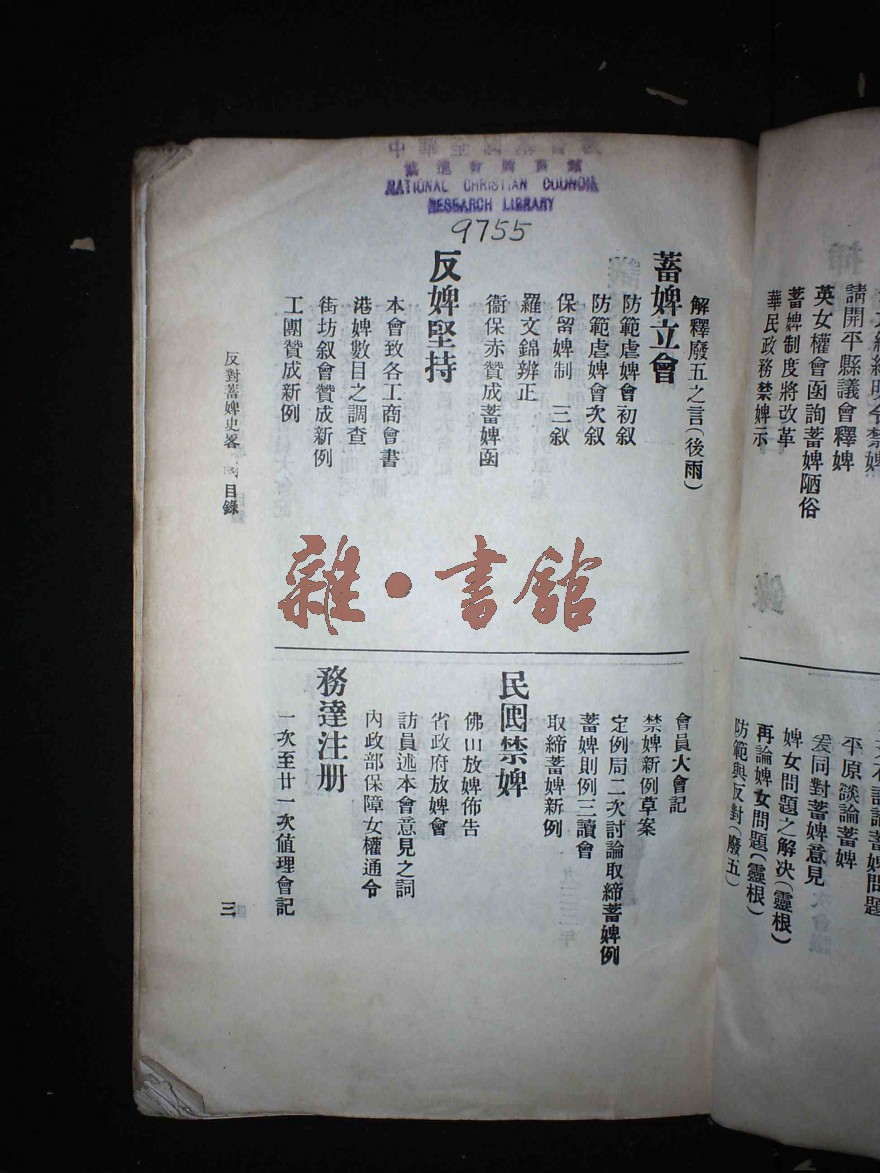 NATIONAL CHRISTIAN COUNCIL
RESEARCH LIBRARY
9755
請開平縣議會釋婢
英女權會函詢蓄婢陋俗
蓄婢制度將改革
華民政務禁婢示
平原談論蓄婢
爰同對蓄婢意見
婢女問題之解決(靈根)
再論婢女問題(靈根)
防範與反對(廢五)
解釋廢五之言(後雨)
蓄婢立會
防範虐婢會初叙
防範虐婢會次叙
保留婢制 三叙
羅文錦辨正
衞保赤贊成蓄婢函
反婢堅持
本會致各工商會書
港婢數目之調查
街坊叙會贊成新例
工團贊成新例
會員大會記
禁婢新例草案
定例局二次討論取締蓄婢例
蓄婢則例三讀會
取締蓄婢新例
民國禁婢
佛山放婢佈告
省政府放婢會
訪員述本會意見之詞
內政部保障女權通令
務達注册
一次至廿一次值理會記
反對蓄婢史畧 目錄
三
雜·書館